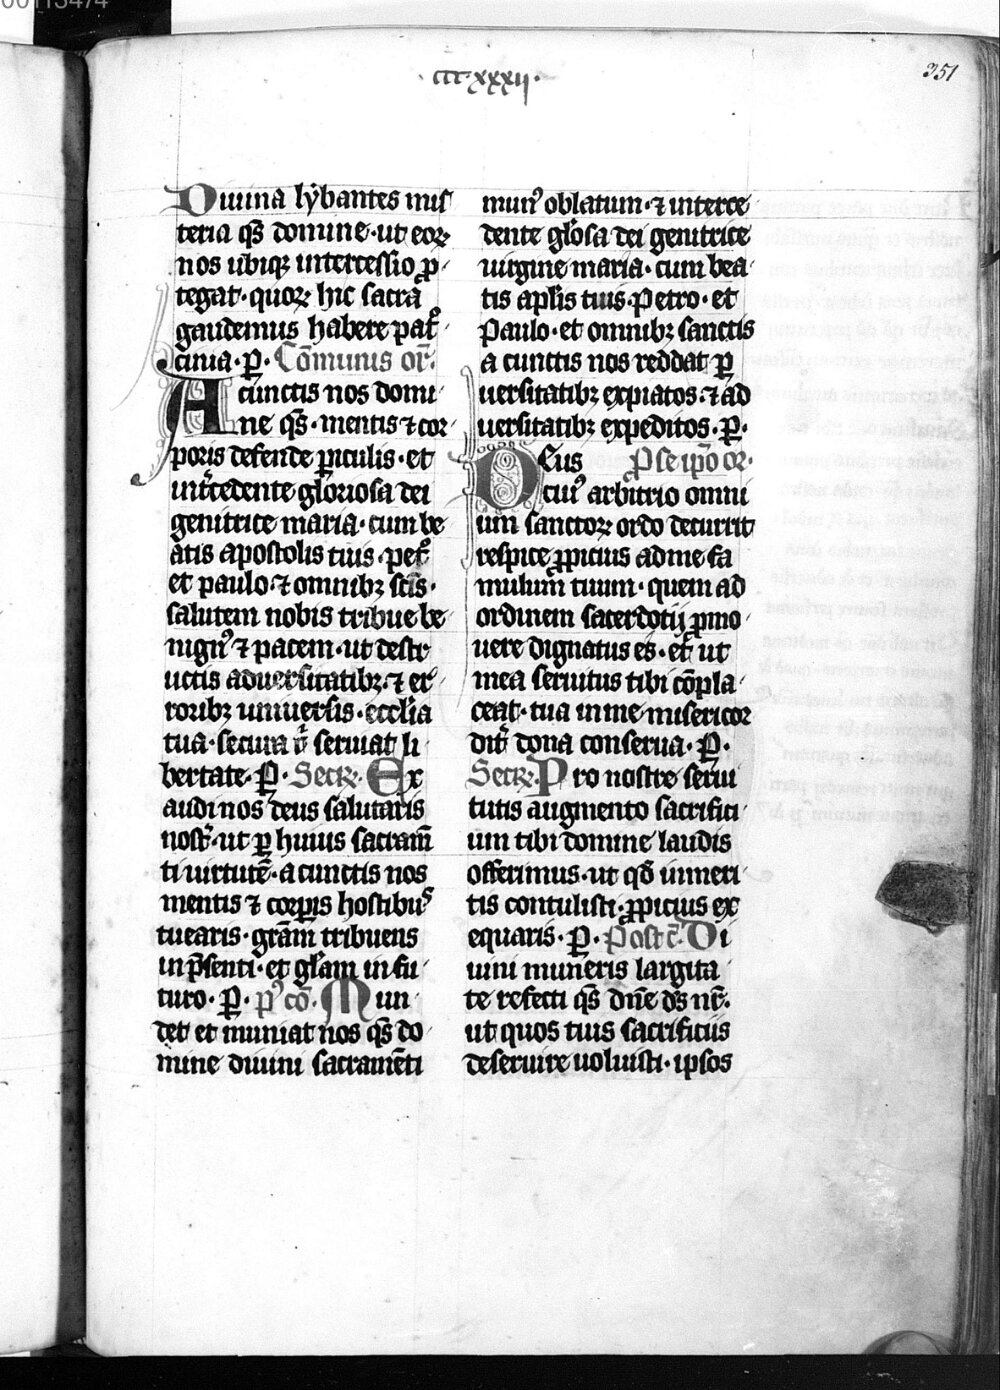 00113474
·ccc·xxxij·
351
Diuina lÿbantes mis
teria qs̄ domine·ut eoꝝ
nos ubiqꝫ intercessio ꝓ
tegat·quoꝝ hic sacra
gaudemus habere pat͛
cinia·p̲· Cōmunis or̄·
A cunctis nos domi
ne qs̄·mentis ⁊ cor
poris defende ꝑiculis·et
int͛cedente gloriosa dei
genitrice maria·cum be
atis apostolis tuis·pet͛
et paulo·⁊ omnibꝫ sc̄is·
salutem nobis tribue be
nignꝰ ⁊ pacem·ut destr
uctis aduersitatibꝫ·⁊ er
roribꝫ uniuersis·eccl̄ia
tua·secura t̄ seruiat li
bertate·P̲· Secꝝ· Ex
audi nos deus salutaris
nost͛·ut ꝑ huius sacram̄
ti uirtutē·a cunctis nos
mentis ⁊ corꝑis hostibuˢ
tuearis·gr̄am tribuens
in p̄senti·et gl̄am in fu
turo·P̲· pꝰ cō· Mun
det et muniat nos qs̄ do
mine diuini sacramēti
munꝰ oblatum·⁊ interce
dente gl̄osa dei genitrice
uirgine maria·cum bea
tis apl̄is tuis·Petro·et
Paulo·et omnibꝫ sanctis
a cunctis nos reddat ꝑ
uersitatibꝫ expiatos·⁊ ad
uersitatibꝫ expeditos·P̲·
Deus P̲ se ip̄o or̄·
cuiꝰ arbitrio omni
um sanctoꝝ ordo decurrit
respice ꝓpicius ad me fa
mulum tuum·quem ad
ordinem sacerdotij ꝓmo
uere dignatus es·et ut
mea seruitus tibi cōpla
ceat·tua in me misericor
dit͛ dona conserua·P̲·
Secꝝ· Pro nostre serui
tutis augmento sacrifici
um tibi domine laudis
offerimus·ut qd̄ inmeri
tis contulisti·ꝓpicius ex
equaris·P̲·Post c̄· Di
uini muneris largita
te refecti qs̄ dn̄e ds̄ nr̄·
ut quos tuis sacrificiis
deseruire uoluisti·ipsos